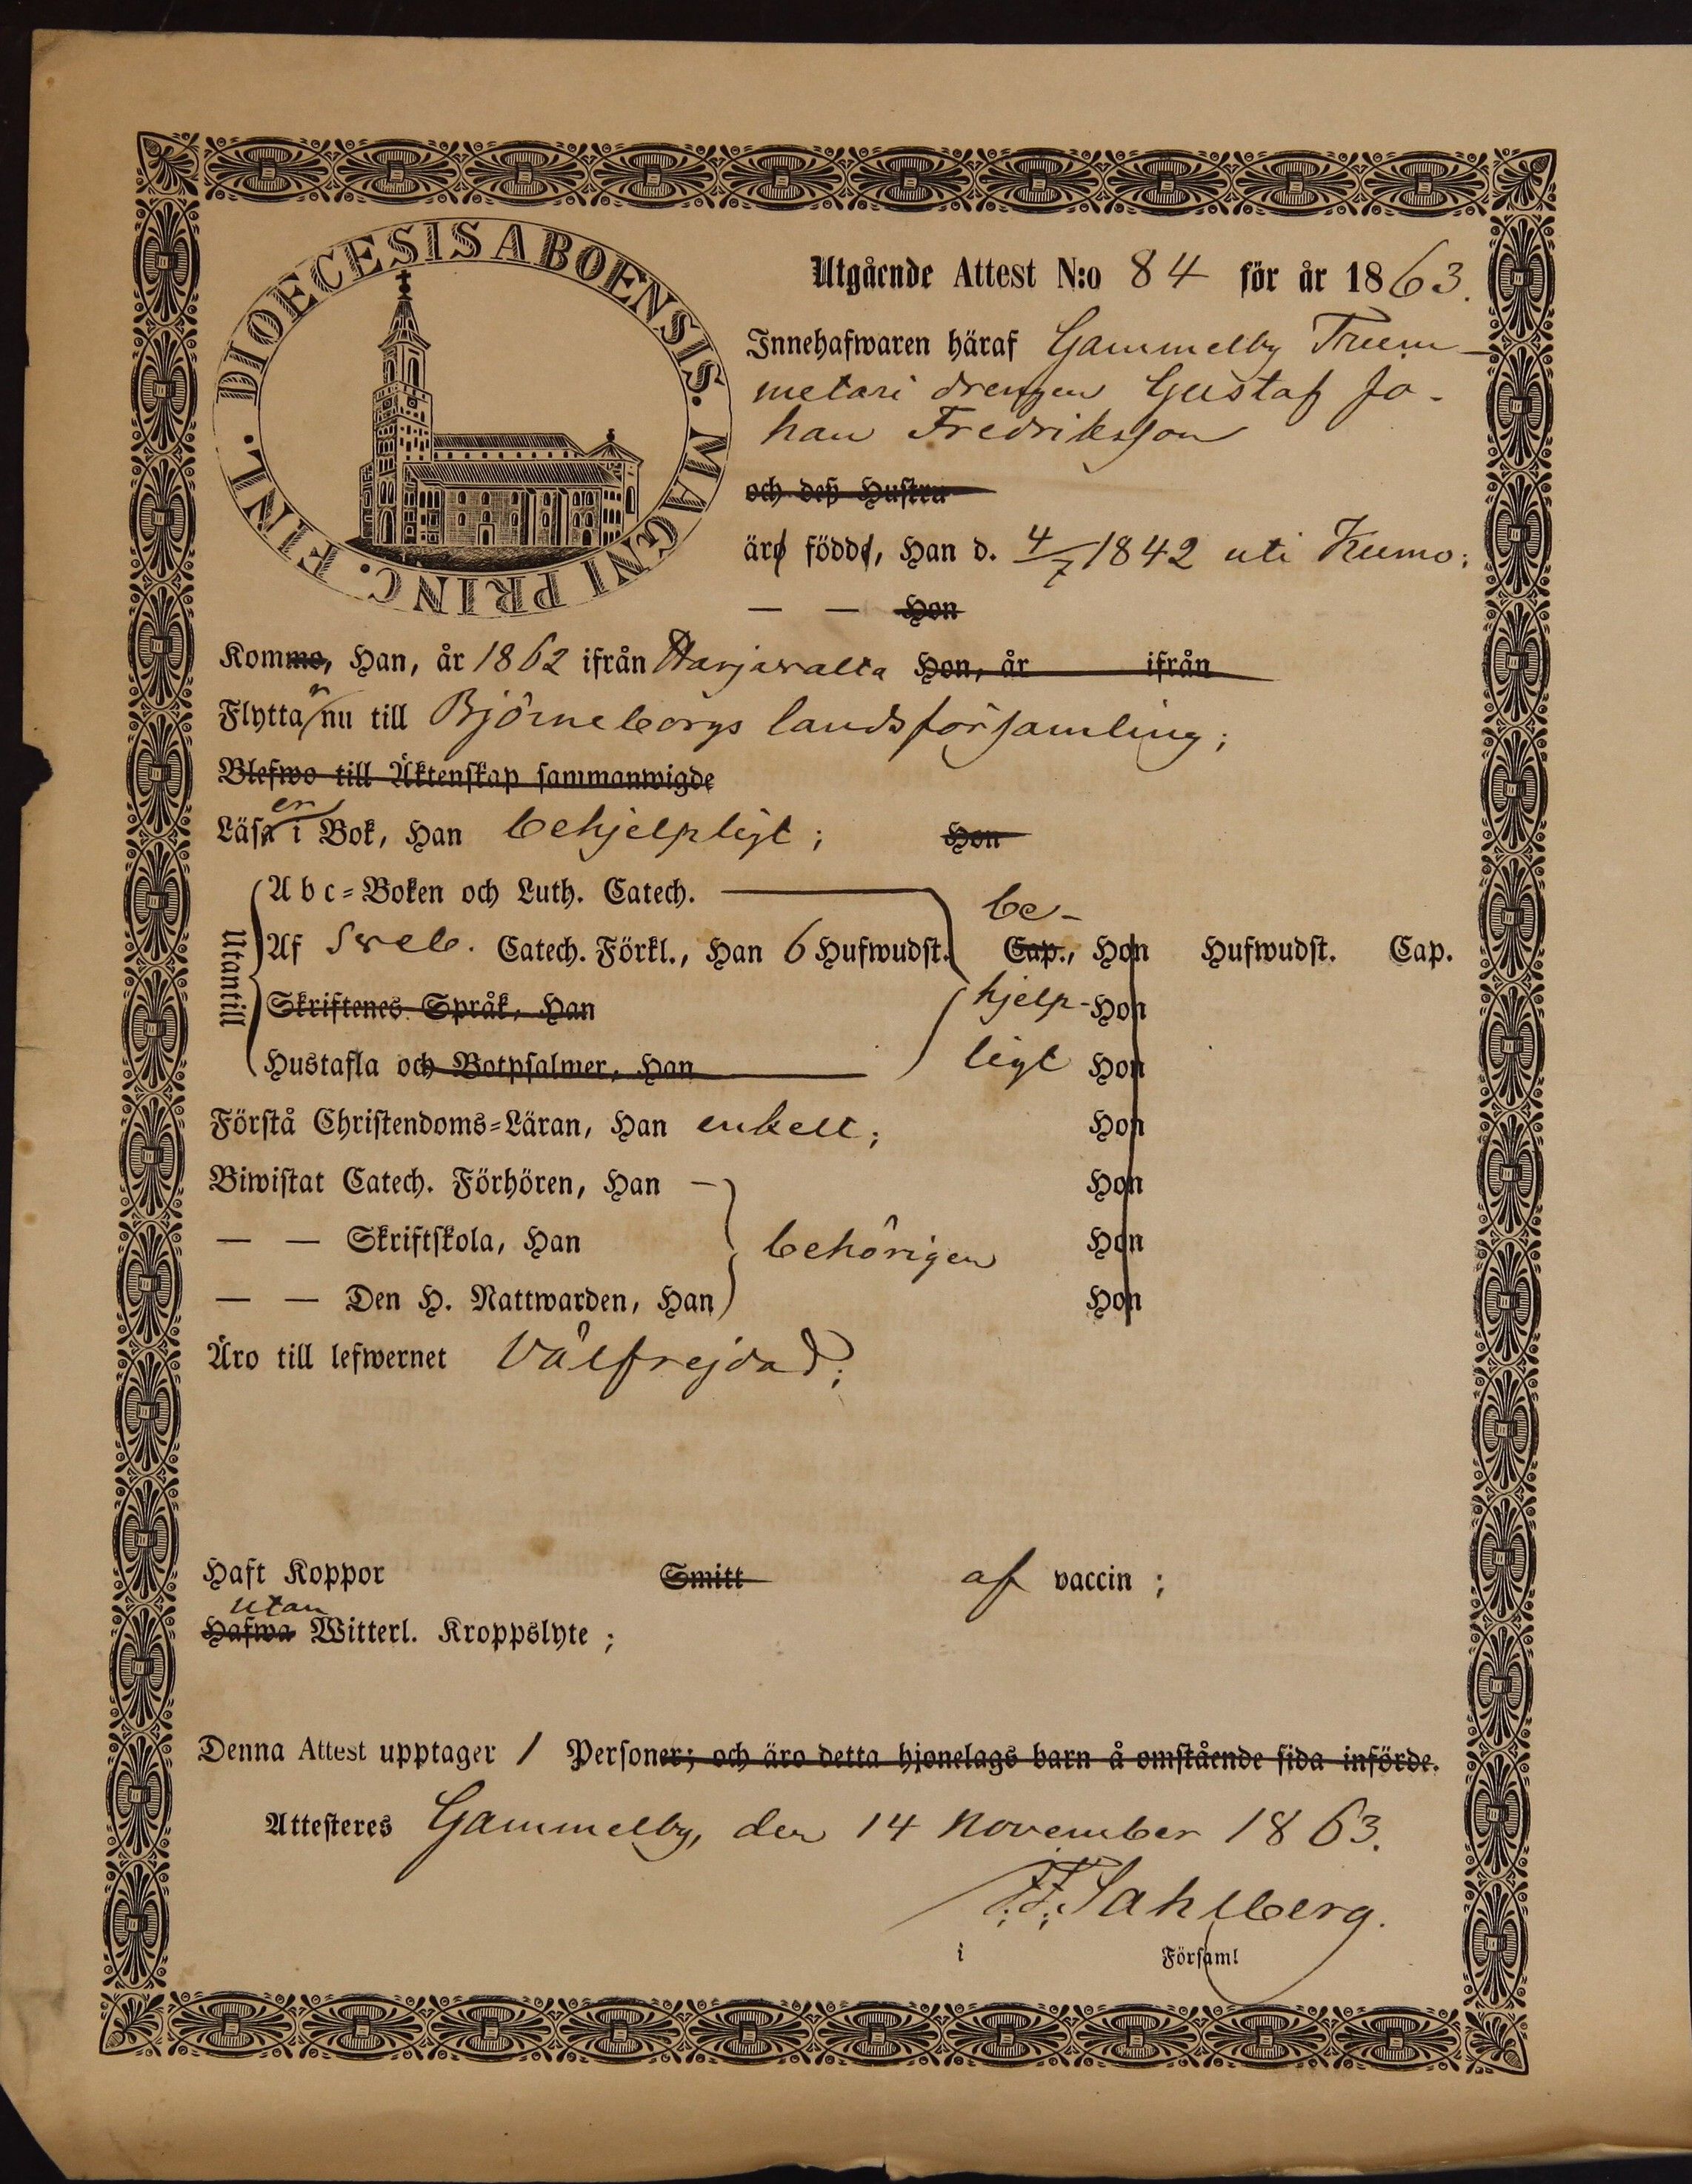 DIOECESIS ABOENSIS. MAGNI PRINC. FINL.
Utgående Attest N:o 84 för år 1863.
Innehafwaren häraf Gammelby Trum-
metari drengen Gustaf Jo-
han Fredriksson
och deß Hustru
äro födde, Han d. 4/7 1842 uti Kumo;
— — Hon
Kommo, Han, år 1862 ifrån Harjavalta Hon, år ifrån
Flyttar nu till Björneborgs landsförsamling;
Blefwo till Äktenskap sammanwigde
er
Läsa i Bok, Han behjelpligt; Hon
Utantill
Abc-Boken och Luth. Catech.
be-
Af Sveb. Catech. Förkl., Han 6 Hufwudst. Cap., Hon Hufwudst. Cap.
Skriftenes Språk, Han hjelp- Hon
Hustafla och Botpsalmer, Han ligt Hon
Förstå Christendoms-Läran, Han enkelt; Hon
Biwistat Catech. Förhören, Han — Hon
— — Skriftskola, Han behörigen Hon
— — Den H. Nattwarden, Han Hon
Äro till lefwernet Välfrejdad;
Haft Koppor Smitt af vaccin;
utan
Hafwa Witterl. Kroppslyte;
Denna Attest upptager 1 Personer; och äro detta hjonelags barn å omstående sida införde.
Attesteres Gammelby, den 14 November 1863.
F. F. Sahlberg.
i Församl